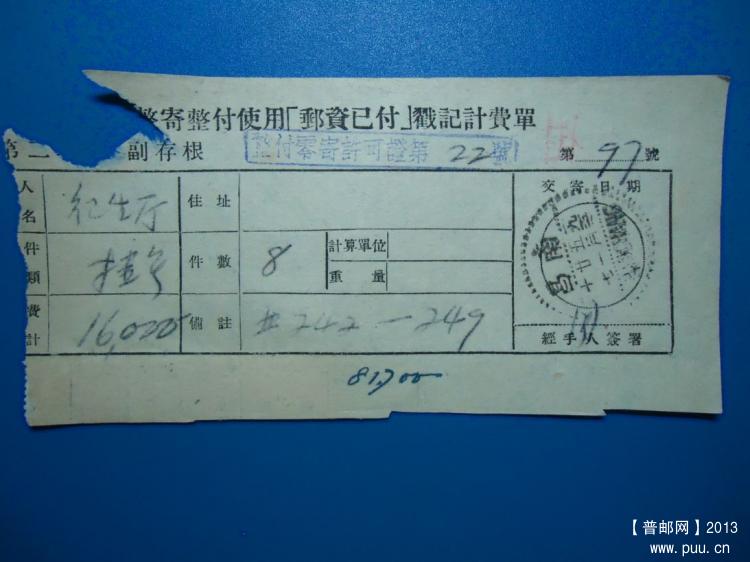 整寄整付使用「郵資已付」戳記計費單
第二 副存根 整付零寄許可證第22號 第97號
人名 住址 交寄日期
件類 掛号 件數 8 計算單位
重量
南昌
費計 16,000 備註 #242—249
經手人簽署
81,700
【普邮网】2013
www.puu.cn